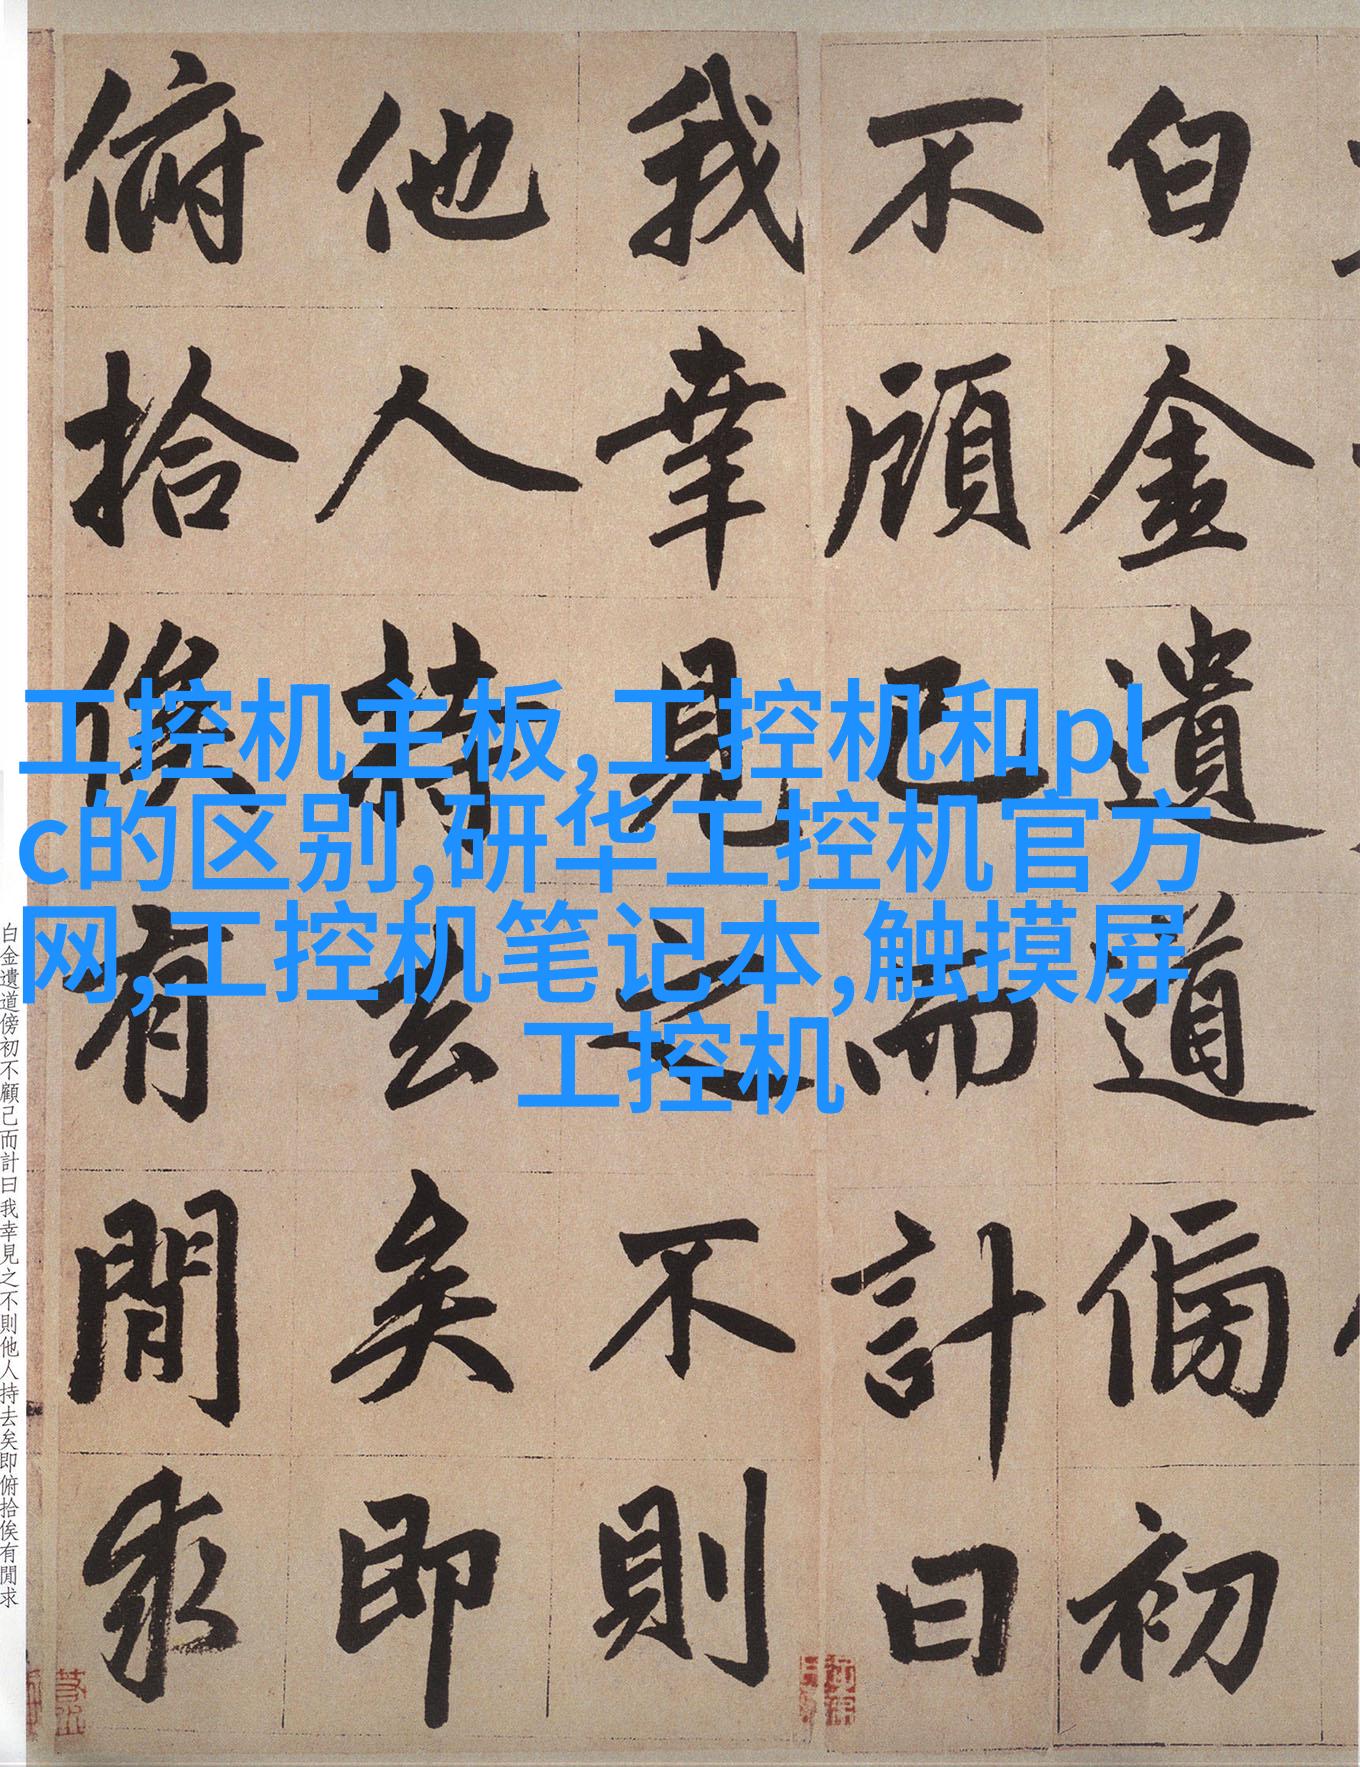 白金遺道傍初
不顧己而計曰
我幸見之不則
他人持去矣即
俯拾俟有閒求
工控机主板,工控机和pl
c的区别,研华工控机官方
网,工控机笔记本,触摸屏
工控机
白金遺道傍初不顧己而計曰我幸見之不則他人持去矣即俯拾俟有閒求